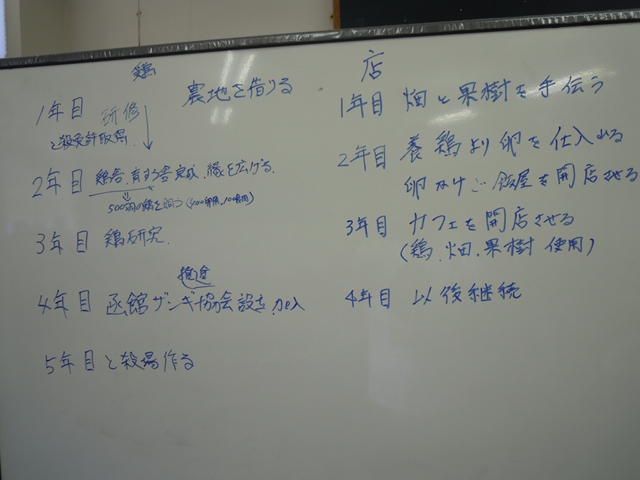 鶏
農地を借りる
1年目 研修
と殺免許取得
2年目 鶏舎、育すう舎完成、縁を広げる。
500羽の鶏を飼う
3年目 鶏研究.
推進
4年目 函館ザンギ協会設立、加入
5年目 と殺場作る
店
1年目 畑と果樹を手伝う
2年目 養鶏より卵を仕入れる
卵かけご飯屋を開店させる
3年目 カフェを開店させる
(鶏、畑、果樹 使用)
4年目 以後継続